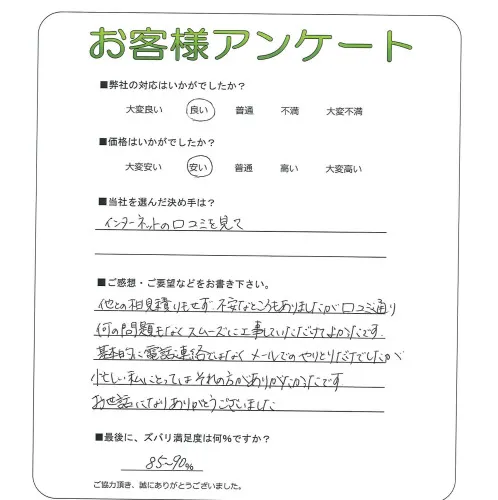 お客様アンケート
■弊社の対応はいかがでしたか?
大変良い 良い 普通 不満 大変不満
■価格はいかがでしたか?
大変安い 安い 普通 高い 大変高い
■当社を選んだ決め手は?
インターネットの口コミを見て
■ご感想・ご要望などをお書き下さい。
他との相見積りもせず、不安なところもありましたが口コミ通り
何の問題もなくスムーズに工事していただけてよかたです。
基本的に電話連絡ではなくメールでのやりとりだけでしたが
忙しい私にとってはそれの方がありがたかったです
お世話になりありがとうございました
■最後に、ズバリ満足度は何%ですか?
85~90%
ご協力頂き、誠にありがとうございました。